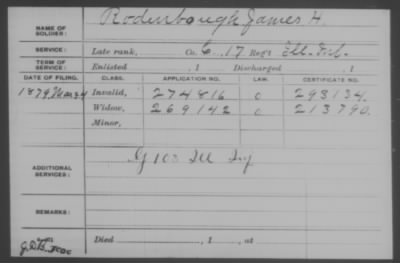 NAME OF SOLDIER: Rodenbough, James H.
SERVICE: Late rank, Co. C, 17 Reg't Ill. Inf.
TERM OF SERVICE: Enlisted , 1 Discharged , 1
DATE OF FILING. CLASS. APPLICATION NO. LAW. CERTIFICATE NO.
1879 Mar 24 Invalid, 274816 C 293134.
Widow, 269142 C 213790.
Minor,
ADDITIONAL SERVICES: G 103 Ill Inf
REMARKS:
Died , 1 , at